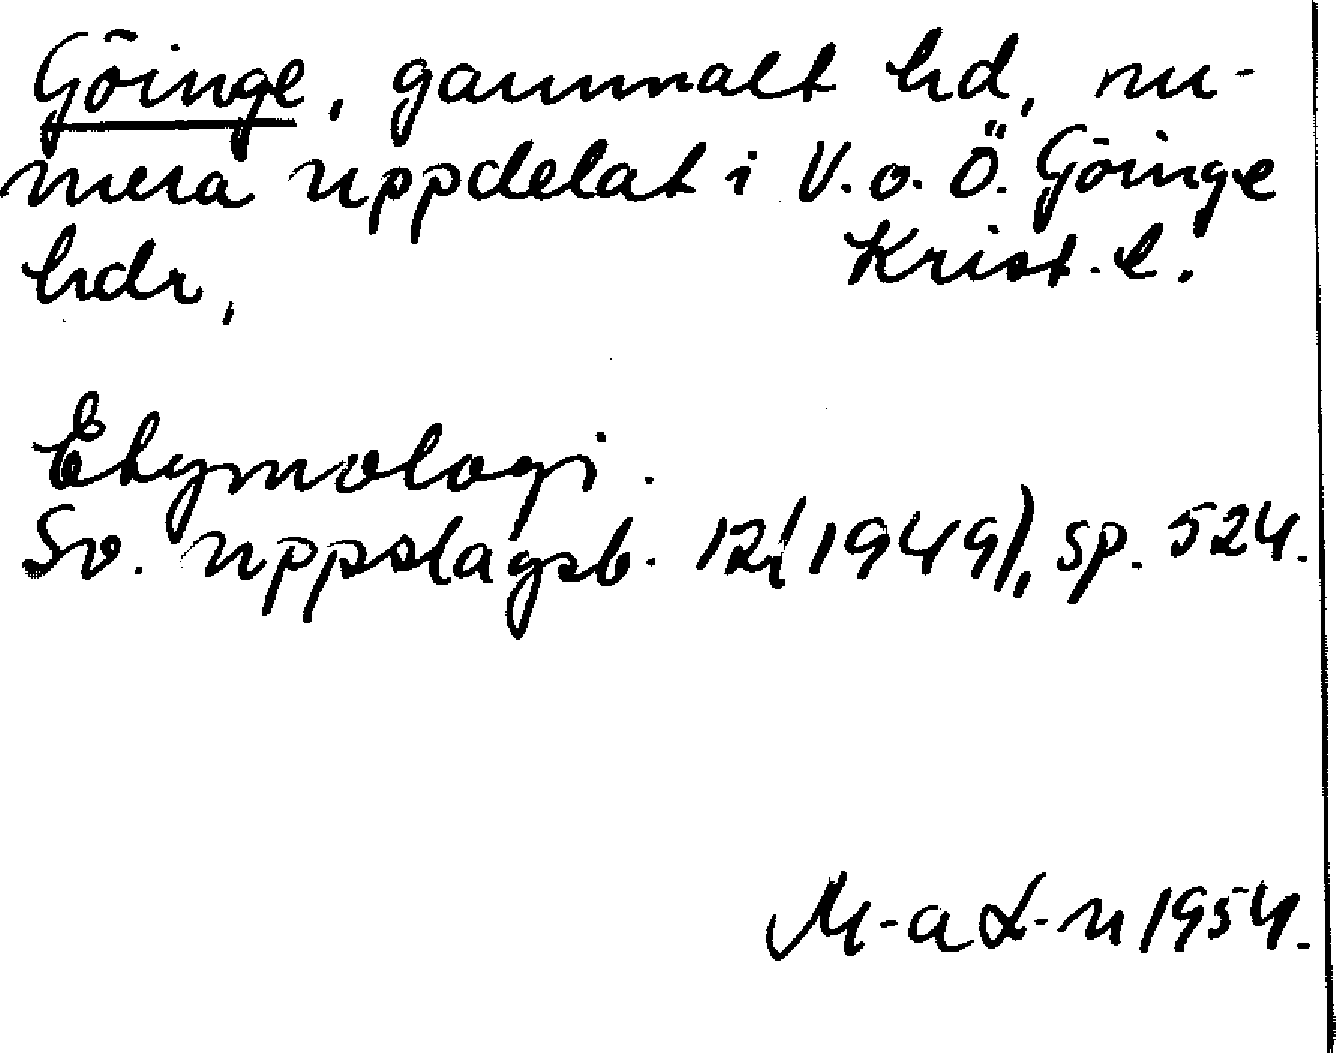 Göinge, gammalt hd, nu-
mera uppdelat i V. o. Ö. Göinge
hdr, Krist. l.
Etymologi.
Sv. uppslagsb. 12 (1949), sp. 524.
M-a L-n 1954.